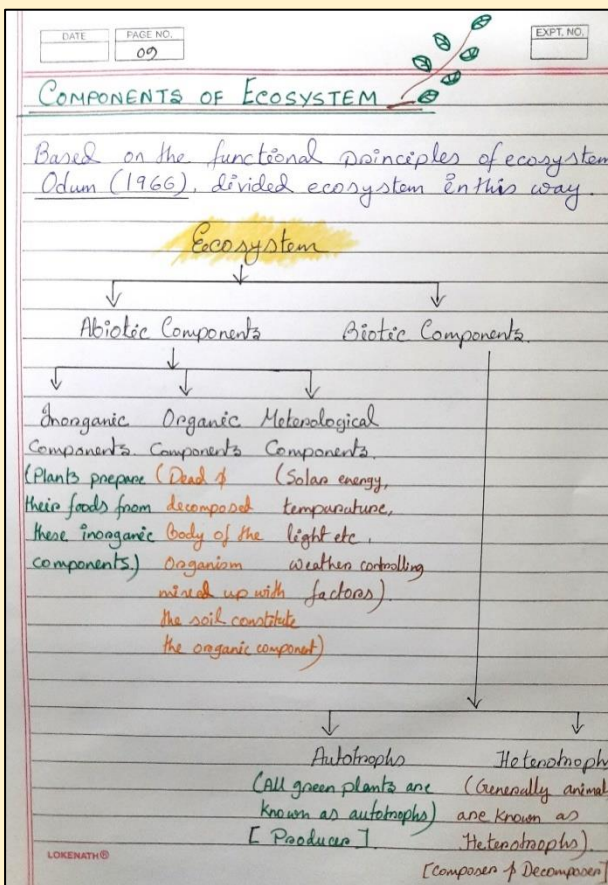 DATE
PAGE NO.
09
EXPT. NO.
COMPONENTS OF ECOSYSTEM
Based on the functional principles of ecosystem
Odum (1966), divided ecosystem in this way.
Ecosystem
Abiotic Components
Biotic Components.
Inorganic
Components.
(Plants prepare
their foods from
these inorganic
components.)
Organic
Components
(Dead &
decomposed
body of the
Organism
mixed up with
the soil constitute
the organic component)
Meterological
Components.
(Solar energy,
tempurature,
light etc.
weather controlling
factors).
Autotrophs
(All green plants are
known as autotrophs)
[Producer]
Heterotroph
(Generally animal
are known as
Heterotrophs).
[Composer & Decomposer]
LOKENATH®